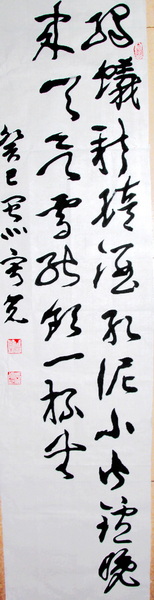 綠蟻新醅酒紅泥小火爐晚
來天欲雪能飲一杯無
癸巳